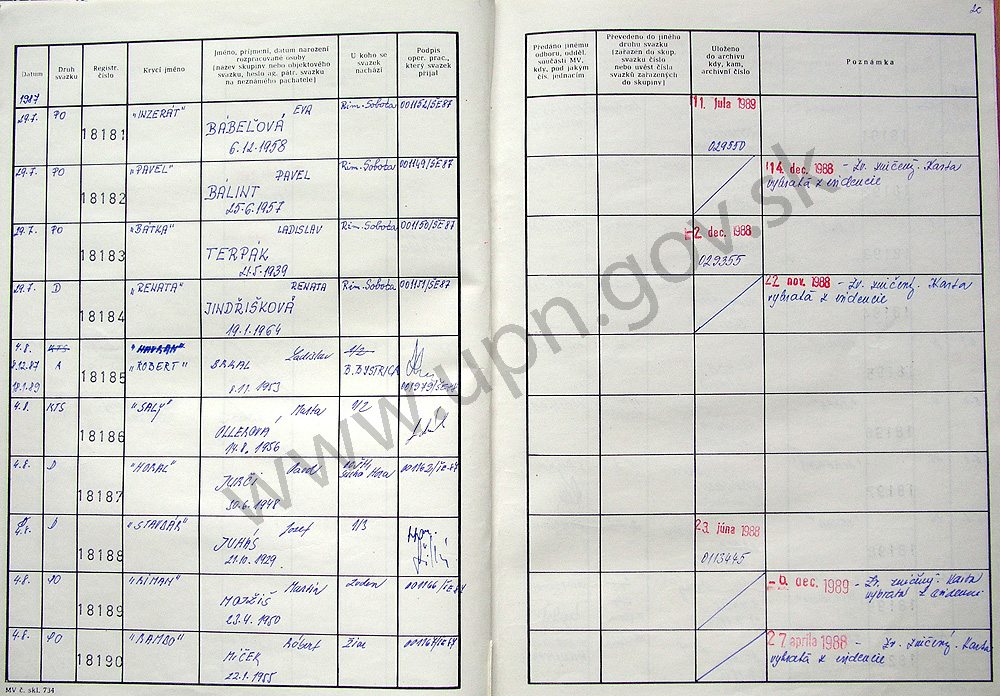 20
Datum
Druh svazku
Registr. číslo
Krycí jméno
Jméno, příjmení, datum narození
rozpracované osoby
(název skupiny nebo objektového
svazku, heslo ag. pátr. svazku
na neznámého pachatele)
U koho se
svazek
nachází
Podpis
oper. prac.,
který svazek
přijal
Předáno jinému
odboru, odděl.
součásti MV,
kdy, pod jakým
čís. jednacím
Převedeno do jiného
druhu svazku
(zařazen do skup.
svazku číslo
nebo uvést čísla
svazků zařazených
do skupiny)
Uloženo
do archivu
kdy, kam,
archivní číslo
Poznámka
1987
29.7. PO 18181 "INZERÁT" EVA Rim. Sobota 001152/SE87 11. júla 1989
BÁBEĽOVÁ
6.12.1958 029550
29.7. PO 18182 "PAVEL" PAVEL Rim. Sobota 001149/SE87 14. dec. 1988 - Zv. zničený. Karta
BÁLINT vybratá z evidencie
25.6.1957
29.7. PO 18183 "BÁTKA" LADISLAV Rim. Sobota 001150/SE87 -2. dec. 1988
TERPÁK
21.5.1939 029355
29.7. D 18184 "RENATA" RENATA Rim. Sobota 001151/SE87 22. nov. 1988 - Zv. zničený. Karta
JINDŘIŠKOVÁ vybratá z evidencie
19.1.1964
4.8. KTS 18185 "HAVRAN" Ladislav
8.12.87 A "ROBERT" B. BYSTRICA
18.1.89 8.11.1953
4.8. KTS 18186 "SALY" Marta 1/2
OLLEROVÁ
14.8.1956
4.8. D 18187 "MORAL" Pavol
JURČI Suchá Hora
30.6.1948
4.8. D 18188 Jozef 1/3 23. júna 1988
JUHÁS
21.10.1929 0113445
4.8. PO 18189 "RIMAN" Martin -9. dec. 1989 - Zv. zničený. Karta
vybratá z evidencie
23.4.1950
4.8. PO 18190 "RAMBO" Róbert 27. apríla 1988 - Zv. zničený. Karta
MIČEK vybratá z evidencie
22.1.1955
MV č. skl. 734
www.upn.gov.sk